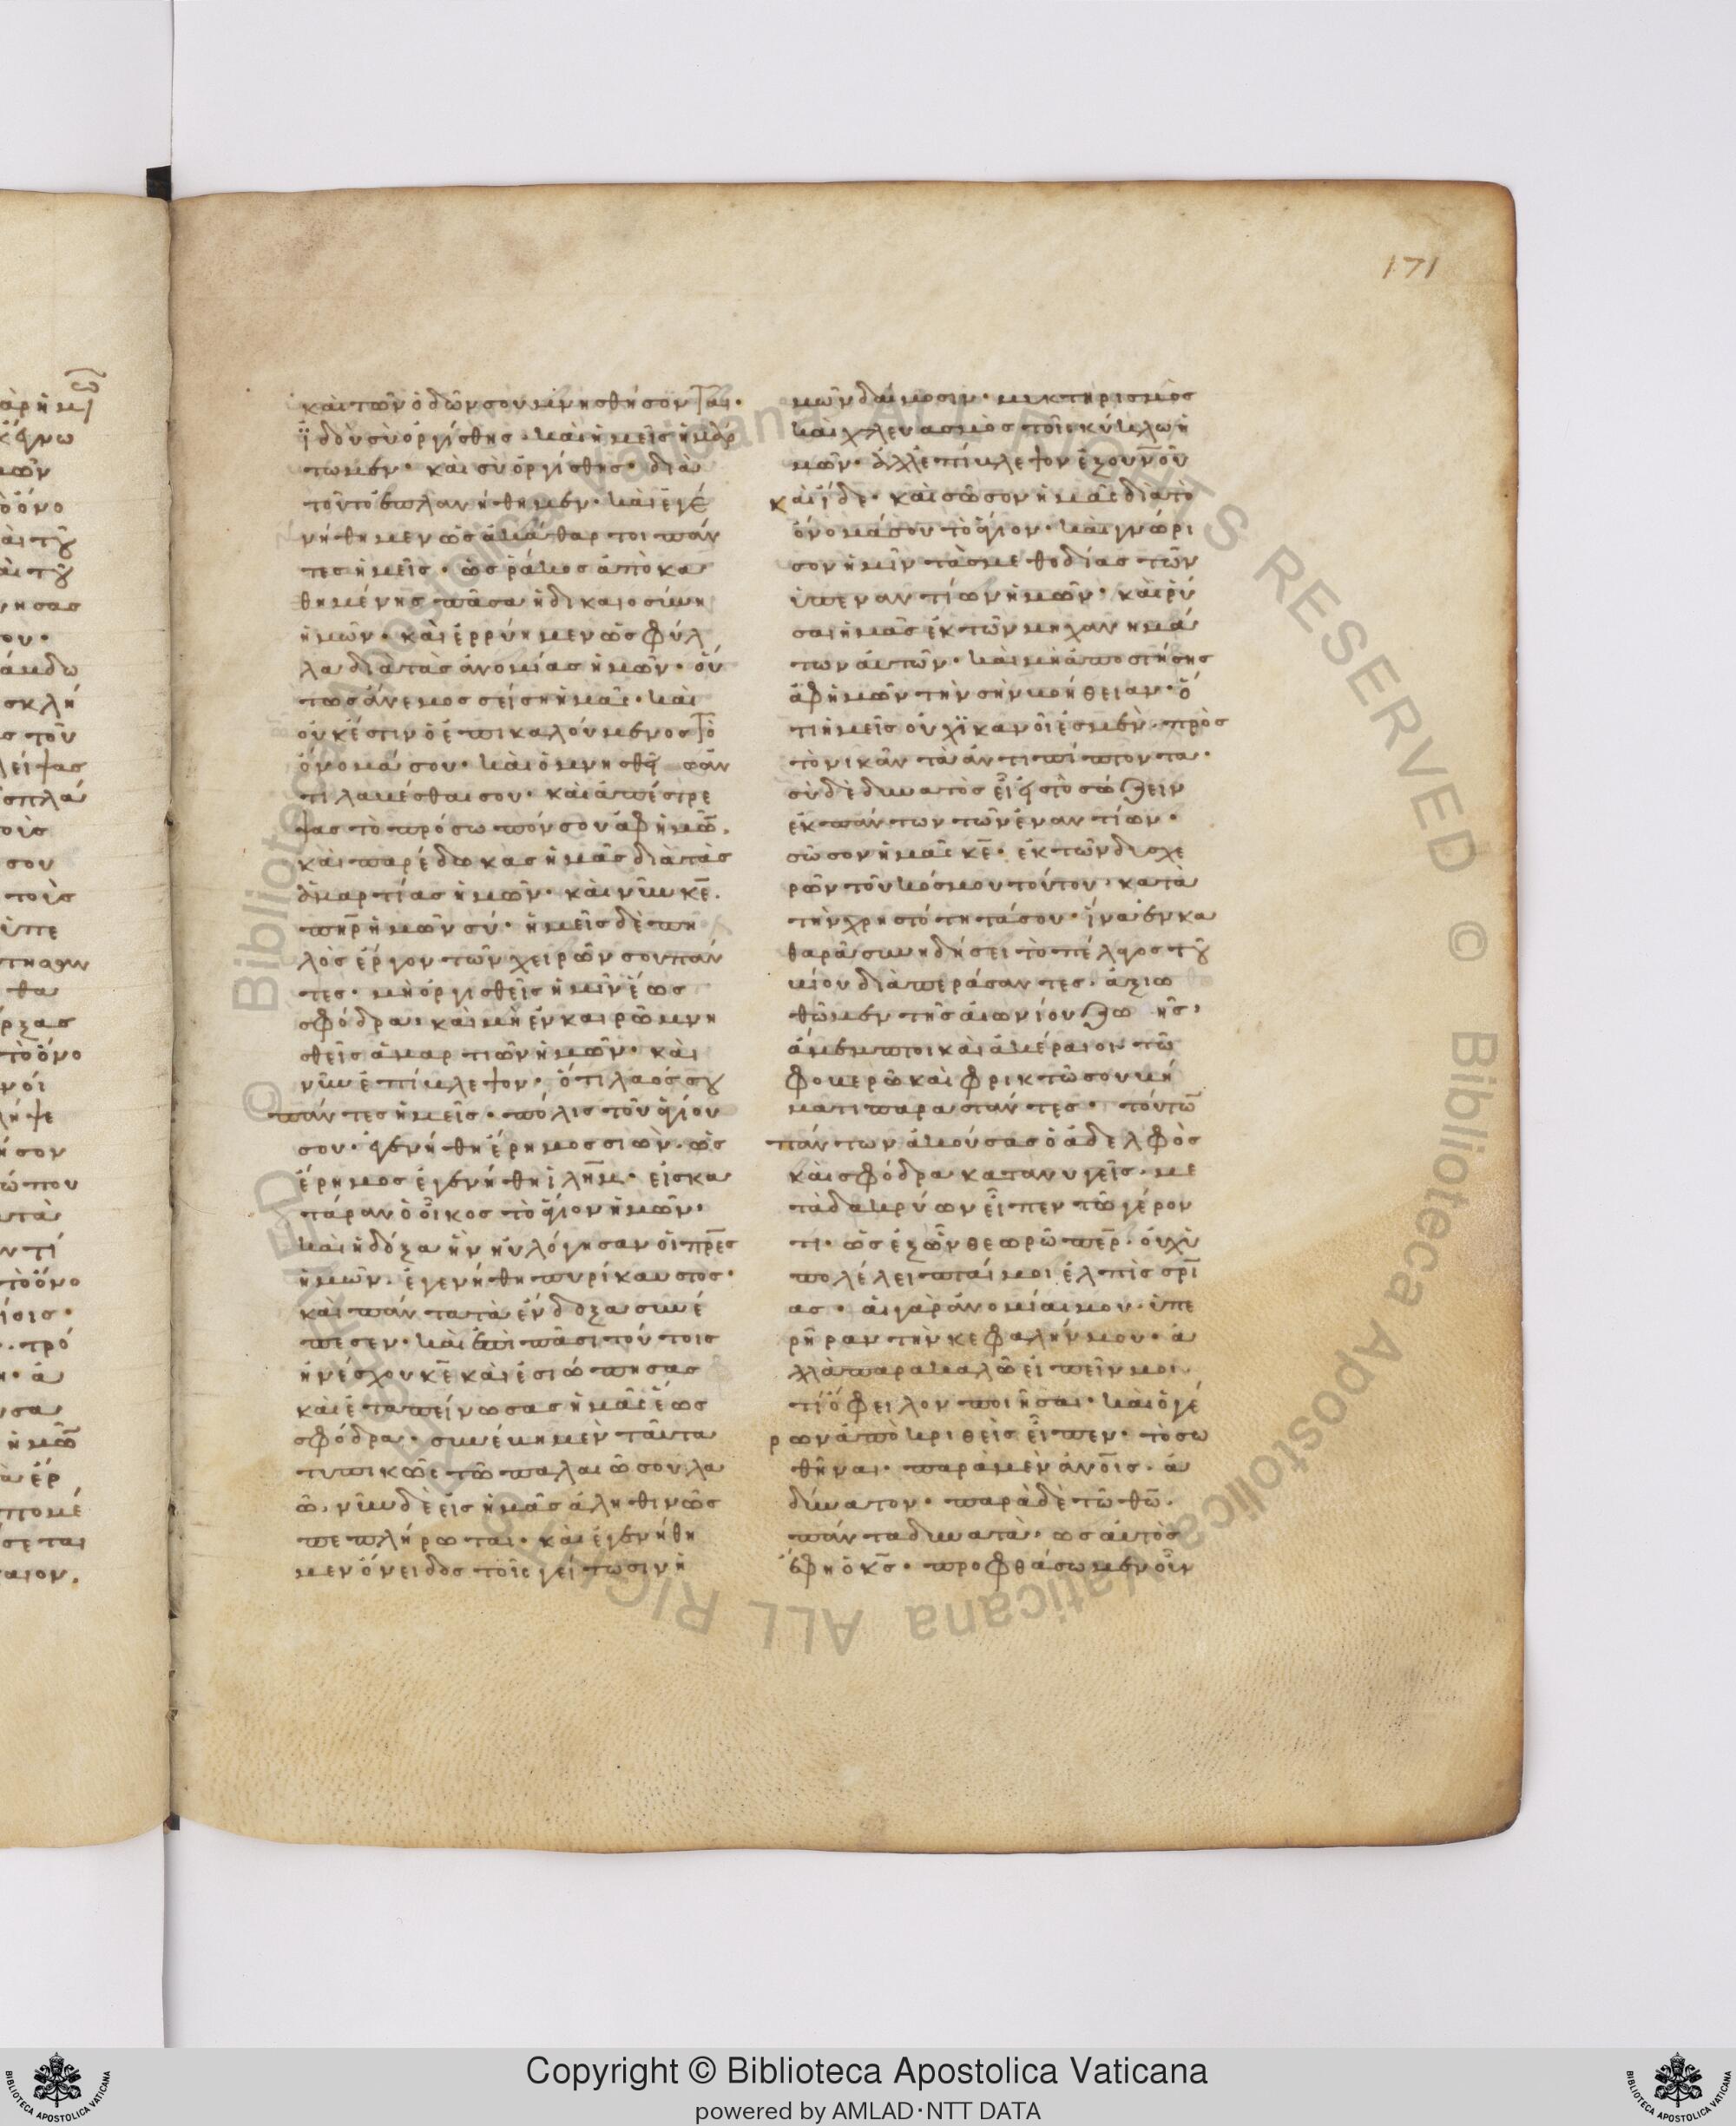 171
καὶ τῶν ὁδῶν σου μνησθήσονται·
ἰδοὺ σὺ ὀργίσθης· καὶ ἡμεῖς ἡμάρ
τωμεν· καὶ σὺ ὀργίσθης· διὰ
τοῦτο ἐπλανήθημεν· καὶ ἐγε
νήθημεν ὡς ἀκάθαρτοι πάν
τες ἡμεῖς· ὡς ῥάκος ἀποκα
θημένης πᾶσα ἡ δικαιοσύνη
ἡμῶν· καὶ ἐρρύημεν ὡς φύλ
λα διὰ τὰς ἀνομίας ἡμῶν· οὕ
τως ἄνεμος σείση ἡμᾶς· καὶ
οὐκ ἔστιν ὁ ἐπικαλούμενος τὸ
ὄνομά σου· καὶ ὁ μνησθεὶς ἀν
τιλαβέσθαι σου· καὶ ἀπέστρε
ψας τὸ πρόσωπόν σου ἀφ ἡμῶν·
καὶ παρέδωκας ἡμᾶς διὰ τὰς
ἁμαρτίας ἡμῶν· καὶ νῦν κε·
πηρ ἡμῶν σύ· ἡμεῖς δὲ πη
λὸς ἔργον τῶν χειρῶν σου πάν
τες· μὴ ὀργισθεῖς ἡμῖν ἕως
σφόδρα· καὶ μὴ ἐν καιρῶ μνη
σθεῖς ἁμαρτιῶν ἡμῶν· καὶ
νῦν ἐπίβλεψον· ὅτι λαός σου
πάντες ἡμεῖς· πόλις τοῦ ἁγίου
σου· ἐγενήθη ἔρημος σιὼν· ὡς
ἔρημος ἐγενήθη ἰλημ· εἰς κα
τάραν ὁ οἶκος τὸ ἅγιον ἡμῶν·
καὶ ἡ δόξα ἣν ηὐλόγησαν οἱ πρες
ἡμῶν· ἐγενήθη πυρίκαυστος·
καὶ πάντα τὰ ἔνδοξα συνέ
πεσεν· καὶ ἐπὶ πᾶσι τούτοις
ἠνέσχου κε καὶ ἐσιώπησας
καὶ ἐταπείνωσας ἡμᾶς ἕως
σφόδρα· συνέβη μὲν ταῦτα
τυπικῶς τῶ παλαιῶ σου λα
ῶ· νῦν δὲ εἰς ἡμᾶς ἀληθινῶς
πεπλήρωται· καὶ ἐγενήθη
μεν ὄνειδος τοῖς γείτωσιν ἡ
μῶν δαίμοσιν· μυκτηρισμὸς
καὶ χλευασμὸς τοῖς κύκλω ἡ
μῶν· ἀλλ ἐπίβλεψον ἐξ ουνου
καὶ ἴδε· καὶ σῶσον ἡμᾶς διὰ τὸ
ὄνομά σου τὸ ἅγιον· καὶ γνώρι
σον ἡμῖν τὰς μεθοδίας τῶν
ὑπεναντίων ἡμῶν· καὶ ῥύ
σαι ἡμᾶς ἐκ τῶν μηχανημά
των αὐτῶν· καὶ μὴ ἀποστήσης
ἀφ ἡμῶν τὴν σὴν βοήθειαν· ὅ
τι ἡμεῖς οὐχ ἱκανοί ἐσμὲν· πρὸς
τὸ νικᾶν τὰ ἀντιπίπτοντα·
σὺ δὲ δυνατὸς εἶ εἰς τὸ σώζειν
ἐκ πάντων τῶν ἐναντίων·
σῶσον ἡμᾶς κε· ἐκ τῶν δυσχε
ρῶν τοῦ κόσμου τούτου· κατὰ
τὴν χρηστότητά σου· ἵνα ἐν κα
θαρᾶ συνηδήσει τὸ πέλαγος τοῦ
βίου διαπεράσαντες· ἀξιω
θῶμεν τῆς αἰωνίου ζωῆς·
ἄμεμπτοι καὶ ἀκέραιοι τῶ
φοβερῶ καὶ φρικτῶ σου βή
ματι παραστάντες· τούτων
πάντων ἀκούσας ὁ ἀδελφὸς
καὶ σφόδρα κατανυγεῖς· με
τὰ δακρύων εἶπεν τῶ γέρον
τι· ὡς ἐξ ὧν θεωρῶ περ· οὐχ ὑ
πολέλειπταί μοι ἐλπὶς σρι
ας· αἱ γὰρ ἀνομίαι μου· ὑπε
ρῆραν τὴν κεφαλήν μου· ἀ
λλὰ παρακαλῶ εἰπεῖν μοι
τί ὄφειλον ποιῆσαι· καὶ ὁ γέ
ρων ἀποκριθεὶς εἶπεν· τὸ σω
θῆναι· παρὰ μὲν ἀνοις· ἀ
δύνατον· παρὰ δὲ τῶ θω·
πάντα δυνατὰ· ὡς αὐτὸς
ἔφη ὁ κς· προφθάσωμεν οὖν
Copyright © Biblioteca Apostolica Vaticana
powered by AMLAD·NTT DATA